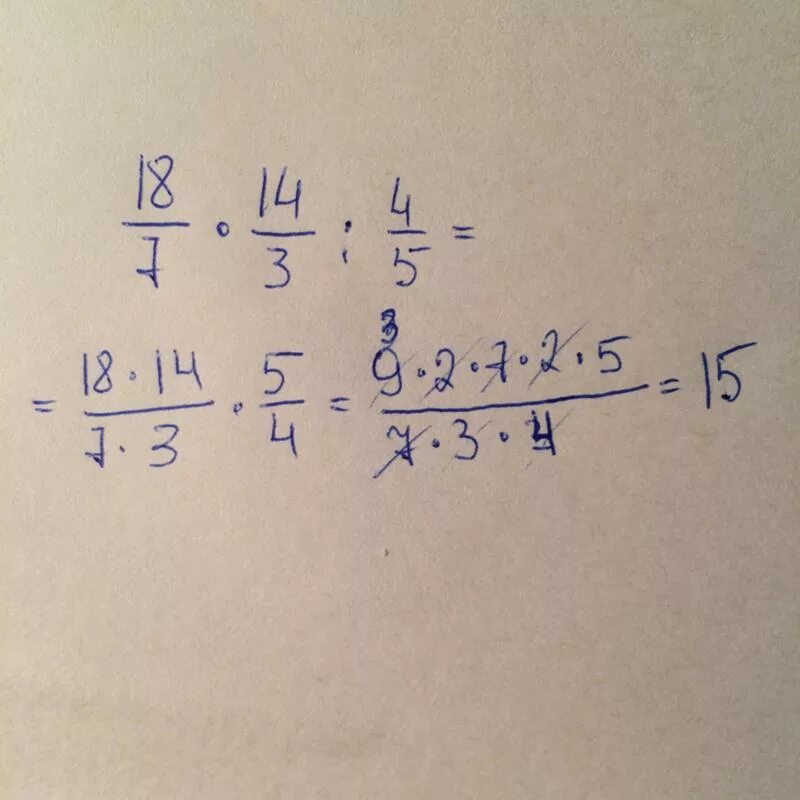 18/7 · 14/3 : 4/5 =
= 18·14/7·3 · 5/4 = 9·2·7·2·5/7·3·4 = 15
3